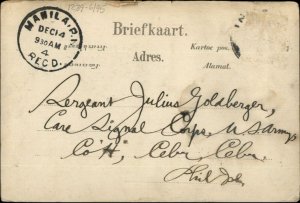 1239-6/95
MANILA, P.I.
DEC 14
930 AM
4
REC'D.
Briefkaart.
Kartoe pos.
Adres.
Alamat.
Sergeant Julius Goldberger,
Care Signal Corps, U S Army
Co "H", Cebu, Cebu.
Phil Is.